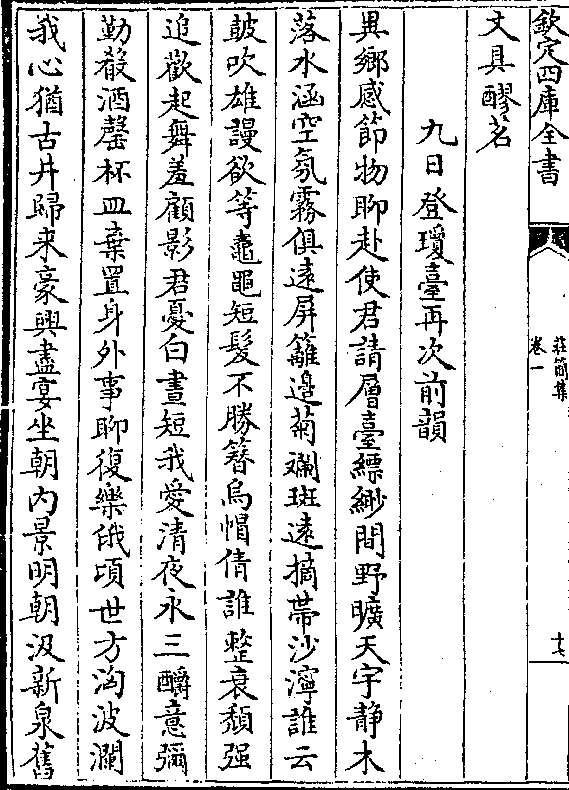 欽定四庫全書
莊簡集
卷一
十六
文具醪茗
九日登瓊臺再次前韻
異鄉感節物聊赴使君請層臺縹緲間野曠天宇静木
落水涵空氛霧俱逺屏籬邉菊斕斑遠摘帯沙濘誰云
鼓吹雄謾欲等鼃黽短髮不勝簪烏帽倩誰整衰頹强
追歡起舞羞顧影君憂白晝短我愛清夜永三釂意彌
勤殽酒罄杯皿棄置身外事聊復樂俄頃世方洶波瀾
我心猶古井歸来豪興盡宴坐朝内景明朝汲新泉舊